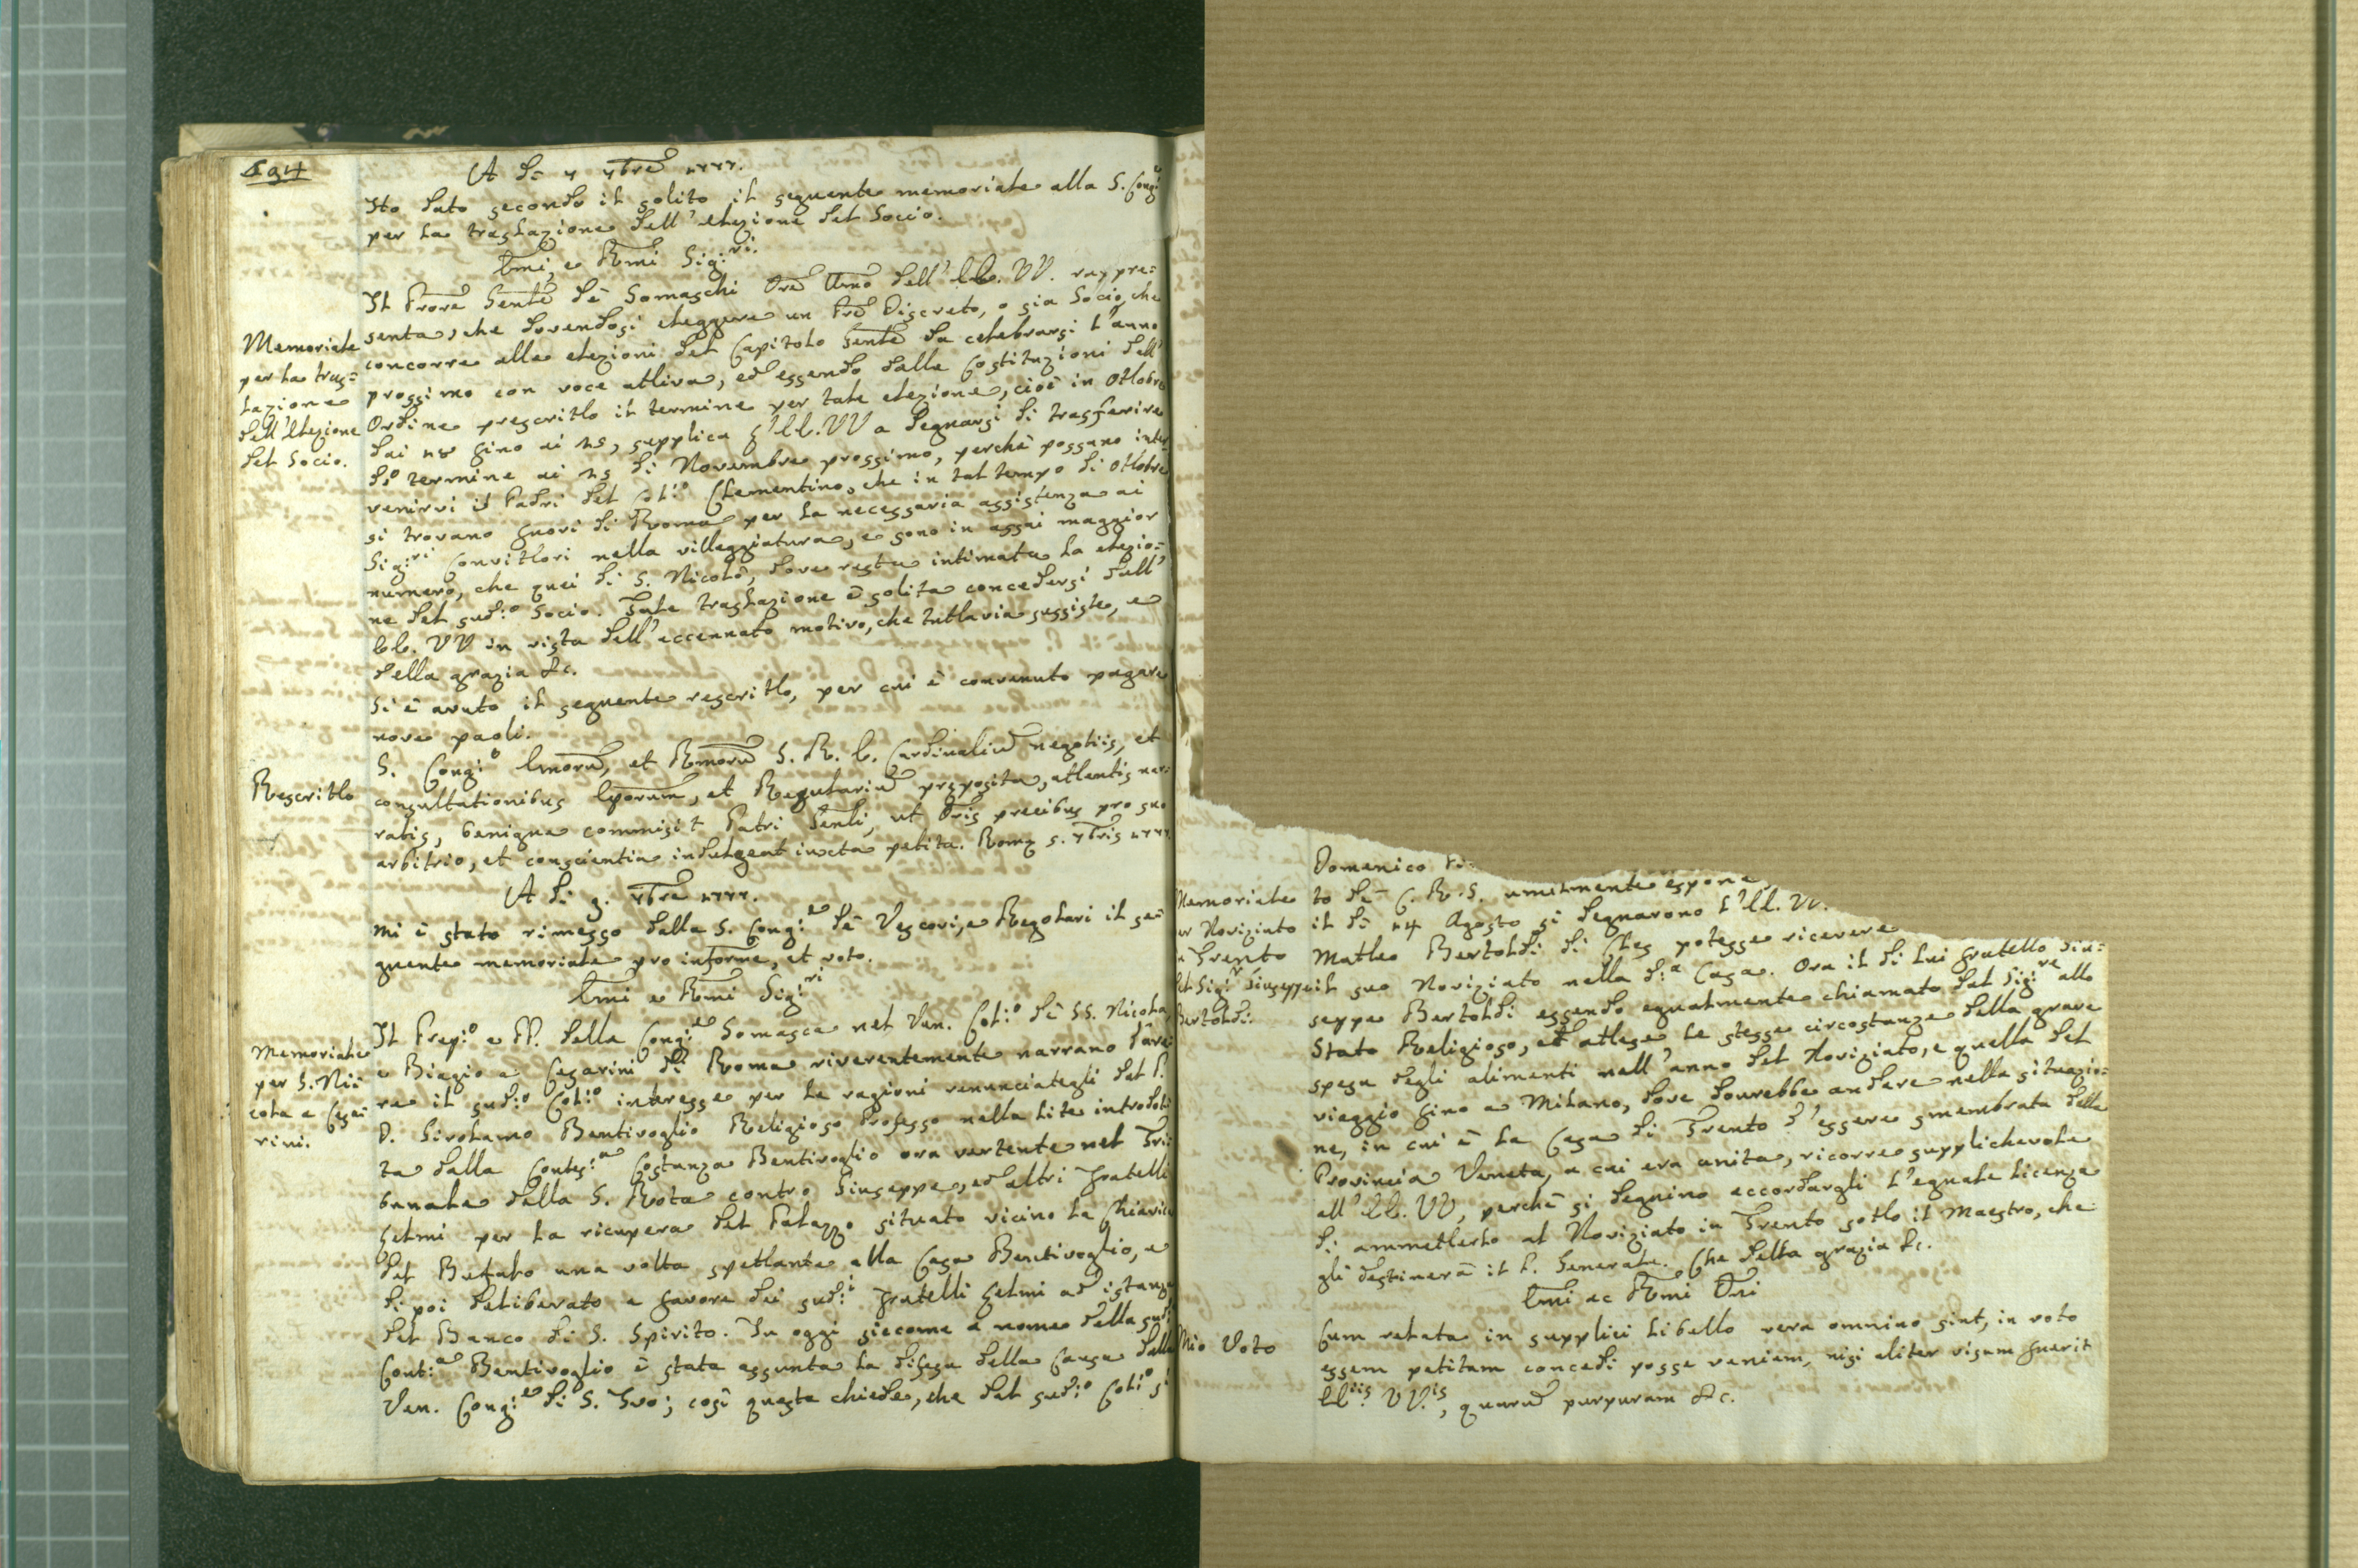 194
A dì 4 7bre 1777.
Ho dato secondo il solito il seguente memoriale alla S. Cong.e
per la traslazione dell'elezione del Socio.
Emi, e Rmi Sig:ri.
Memoriale
per la tras=
lazione
dell'Elezione
del Socio.
Il Prore Genle dè Somaschi Ore Umo dell'EE. VV. rappre=
senta, che dovendosi eleggere un Pre Discreto, o sia Socio, che
concorre alle elezioni del Capitolo Genle da celebrarsi l'anno
prossimo con voce attiva, ed essendo dalle Costituzioni dell'
Ordine prescritto il termine per tale elezione, cioè in Ottobre
dai 18 fino ai 25, supplica l'EE. VV a degnarsi di trasferire
do termine ai 25 di Novembre prossimo, perchè possano inter-
venirvi i Padri del Col:o Clementino, che in tal tempo di Ottobre
si trovano fuori di Roma per la necessaria assistenza ai
Sig:ri Convittori nella villeggiatura, e sono in assai maggior
numero, che quei di S. Nicolò, dove resta intimata la elezio=
ne del sud:o Socio. Tale traslazione è solita concedersi dall'
EE. VV in vista dell'accennato motivo, che tuttavia sussiste, e
della grazia &c.
Si è avuto il seguente rescritto, per cui è convenuto pagare
nove paoli.
Rescritto
S. Cong:o Emorum, et Rmorum S. R. E. Cardinalium negotiis, et
consultationibus Eporum, et Regularium præposita, attentis nar=
ratis, benigne commisit Patri Genli, ut Oris precibus pro suo
arbitrio, et conscientia indulgeat iuxta petita. Romæ 5. 7bris 1777.
A dì 9. 7bre 1777.
Mi è stato rimesso dalla S. Cong:e dè Vescovi, e Regolari il se=
guente memoriale pro informe, et voto.
Emi e Rmi Sig:ri
Memoriale
per S. Nic=
cola a Cesa=
rini.
Il Prep:o e PP. della Cong:e Somasca nel Ven. Col:o dè SS. Nicola,
e Biagio a Cesarini di Roma riverentemente narrano d'ave=
re il sud:o Col:o interesse per le ragioni renunciategli dal P.
D. Girolamo Bentivoglio Religioso Professo nella lite introdot=
ta dalla Contes:a Costanza Bentivoglio ora vertente nel Tri=
bunale della S. Rota contro Giuseppe, ed altri Fratelli
Gelmi per la ricupera del Palazzo situato vicino la Chiavica
del Bufalo una volta spettante alla Casa Bentivoglio, e
di poi deliberato a favore dei sud:i Fratelli Gelmi ad istanza
del Banco di S. Spirito. In oggi siccome a nome della sud.a
Cont:a Bentivoglio è stata assunta la difesa della Causa dalla
Ven. Cong:e di S. Ivo; così questa chiede, che dal sud:o Col:o si
Domenico
Memoriale
Noviziato
Trento
Sig:r Giuseppe
Bertoldi.
to dè C. R. S. umilmente espone
il dì 14 Agosto si degnarono l'EE. VV.
Matteo Bertoldi di Cles potesse ricevere
il suo Noviziato nella d:a Casa. Ora il di lui fratello Giu=
seppe Bertoldi essendo egualmente chiamato dal Sig:re allo
Stato Religioso, ed attese le stesse circostanze della grave
spesa degli alimenti nell'anno del Noviziato, e quella del
viaggio fino a Milano, dove dovrebbe andare nella situazio=
ne, in cui è la Casa di Trento d'essere smembrata dalla
Provincia Veneta, a cui era unita, ricorre supplichevole
all'EE. VV, perchè si degnino accordargli l'eguale licenza
di ammetterlo al Noviziato in Trento sotto il Maestro, che
gli destinerà il P. Generale. Che della grazia &c.
Emi ac Rmi Dni
Mio Voto
Cum relata in supplici libello vera omnino sint, in voto
essem petitam concedi posse veniam, nisi aliter visum fuerit
EE:iis VV:is, quarum purpuram &c.